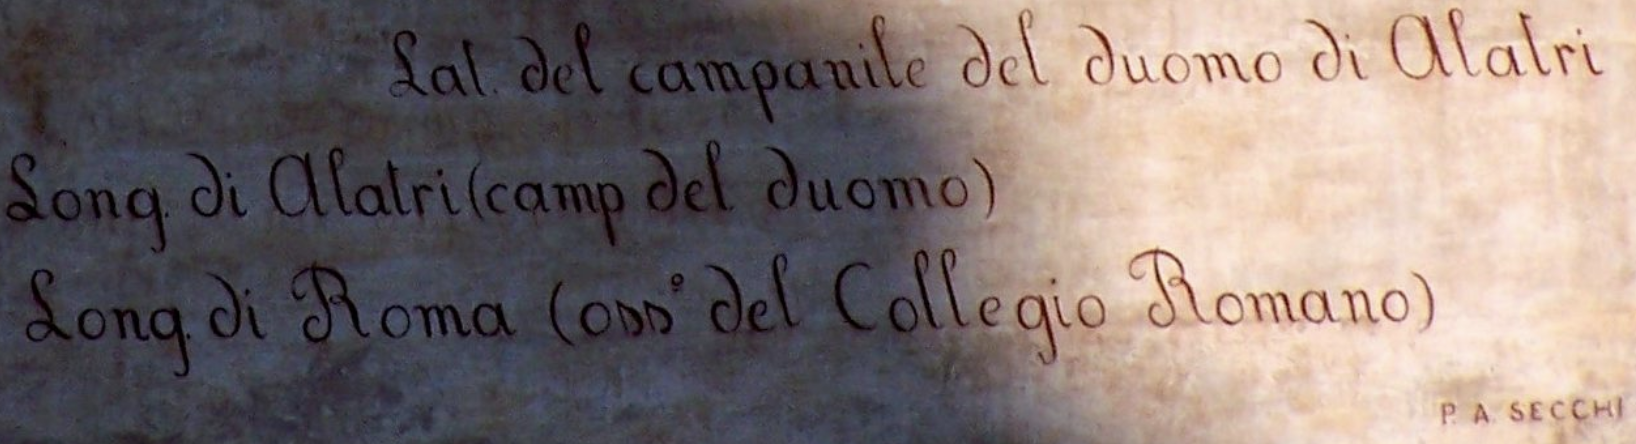 Lat. del campanile del duomo di Alatri
Long. di Alatri (camp del duomo)
Long. di Roma (oss° del Collegio Romano)
P. A. SECCHI